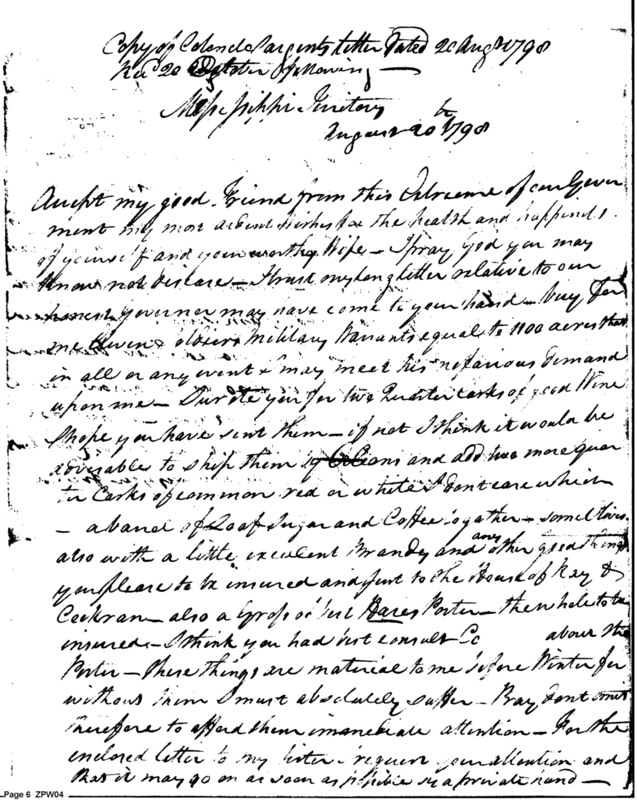 Copy of Colonel Sargents letter Dated 20 Augt 1798
Recd 20 October following
Mississippi Territory
August 20th 1798
Accept my good Friend from this Extreme of our Govern
ment my most ardent wishes for the health and happiness
of yourself and your worthy Wife – I pray god you may
know not disease – I trust my long letter relative to our
honest governor may have come to your hand – buy for
me Military Warrants equal to 1100 acres that
in all or any event I may meet his nefarious demand
upon me – I wrote you for two Quarter Casks of good Wine
I hope you have sent them – if not I think it would be
advisable to ship them and add two more quar
ter Casks of common red or white I dont care which
– a barrel of Loaf Sugar and Coffee together – some
also with a little excellent Brandy and any other good things
you please to be insured and sent to the House of Ray &
Cockran – also a Gross of best Hares Porter – the whole to be
insured – I think you had best consult Co about the
Porter – These things are material to me before Winter for
without them I must absolutely suffer – Pray dont omit
therefore to afford them immediate attention – For the
enclosed letter to my sister I request your attention and
that it may go on as soon as possible by a private hand –
Page 6 ZPW04